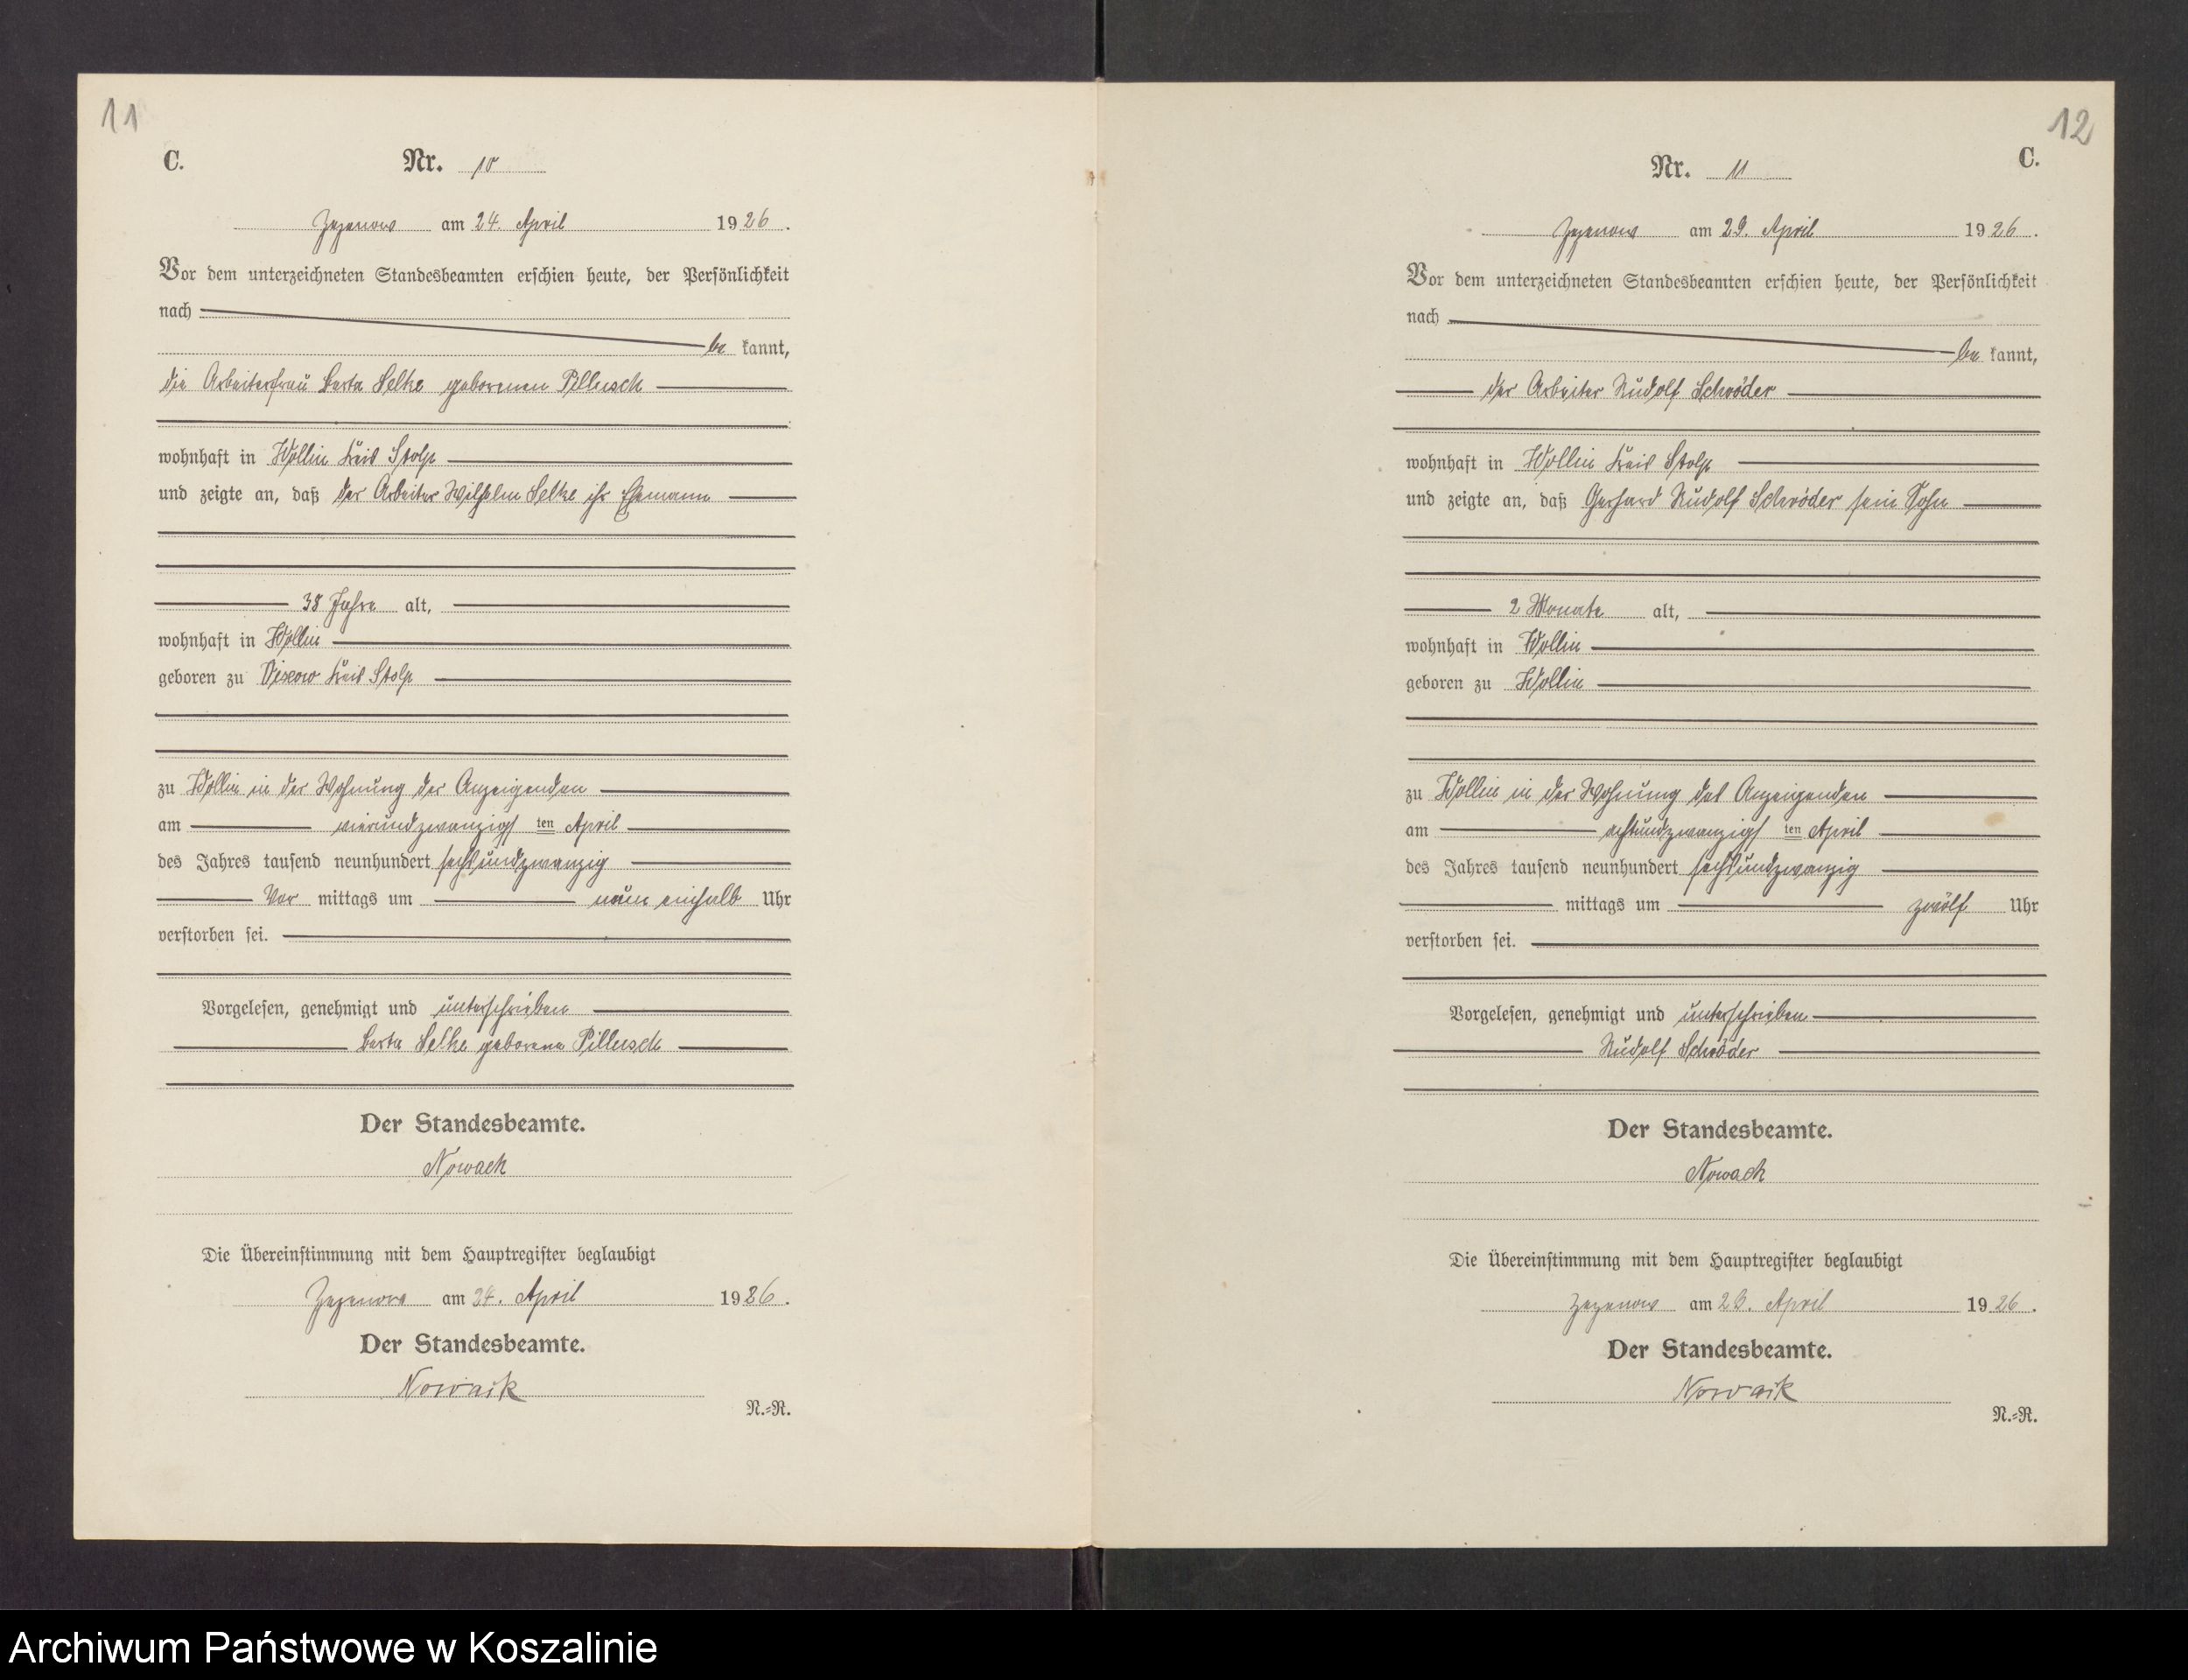 11
C. Nr. 10
Zezenow am 24. April 1926.
Vor dem unterzeichneten Standesbeamten erschien heute, der Persönlichkeit
nach
be kannt,
die Arbeiterfrau Berta Selke geborenen Pillusch
wohnhaft in Wollin Kreis Stolp
und zeigte an, daß der Arbeiter Wilhelm Selke ihr Ehemann
38 Jahre alt,
wohnhaft in Wollin
geboren zu Vixow Kreis Stolp
zu Wollin in der Wohnung der Anzeigenden
am vierundzwanzigsten April
des Jahres tausend neunhundert sechsundzwanzig
Vor mittags um neun einhalb Uhr
verstorben sei.
Vorgelesen, genehmigt und unterschrieben
Berta Selke geborene Pillusch
Der Standesbeamte.
Nowack
Die Übereinstimmung mit dem Hauptregister beglaubigt
Zezenow am 24. April 1926.
Der Standesbeamte.
Nowack
N.=R.
12
Nr. 11 C.
Zezenow am 29. April 1926.
Vor dem unterzeichneten Standesbeamten erschien heute, der Persönlichkeit
nach
be kannt,
der Arbeiter Rudolf Schröder
wohnhaft in Wollin Kreis Stolp
und zeigte an, daß Gerhard Rudolf Schröder sein Sohn
2 Monate alt,
wohnhaft in Wollin
geboren zu Wollin
zu Wollin in der Wohnung des Anzeigenden
am achtundzwanzigsten April
des Jahres tausend neunhundert sechsundzwanzig
mittags um zwölf Uhr
verstorben sei.
Vorgelesen, genehmigt und unterschrieben
Rudolf Schröder
Der Standesbeamte.
Nowack
Die Übereinstimmung mit dem Hauptregister beglaubigt
Zezenow am 29. April 1926.
Der Standesbeamte.
Nowack
N.=R.
Archiwum Państwowe w Koszalinie